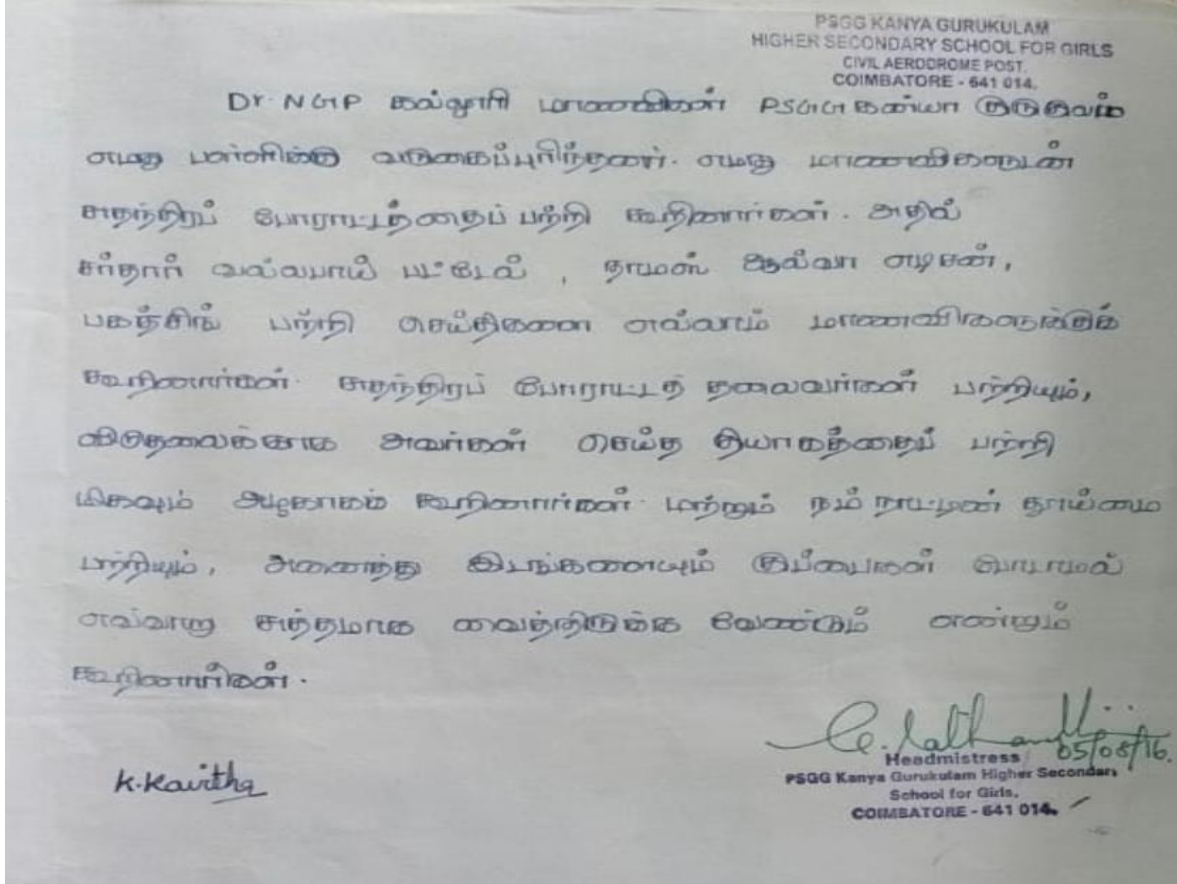 PSGG KANYA GURUKULAM
HIGHER SECONDARY SCHOOL FOR GIRLS
CIVIL AERODROME POST,
COIMBATORE - 641 014.
Dr. NGP கல்லூரி மாணவிகள் PSGG கன்யா குருகுலம்
எமது பள்ளிக்கு வருகைப்புரிந்தனர். எமது மாணவிகளுடன்
சுதந்திரப் போராட்டத்தைப் பற்றி கூறினார்கள். அதில்
சர்தார் வல்லபாய் பட்டேல், தாமஸ் ஆல்வா எடிசன்,
பகத்சிங் பற்றி செய்திகளை எல்லாம் மாணவிகளுக்குக்
கூறினார்கள். சுதந்திரப் போராட்டத் தலைவர்கள் பற்றியும்,
விடுதலைக்காக அவர்கள் செய்த தியாகத்தைப் பற்றி
மிகவும் அழகாகக் கூறினார்கள். மற்றும் நம் நாட்டின் தூய்மை
பற்றியும், அனைத்து இடங்களையும் குப்பைகள் போடாமல்
எவ்வாறு சுத்தமாக வைத்திருக்க வேண்டும் என்றும்
கூறினார்கள்.
05/08/16.
Headmistress
PSGG Kanya Gurukulam Higher Secondary
School for Girls,
COIMBATORE - 641 014.
K. Kavitha